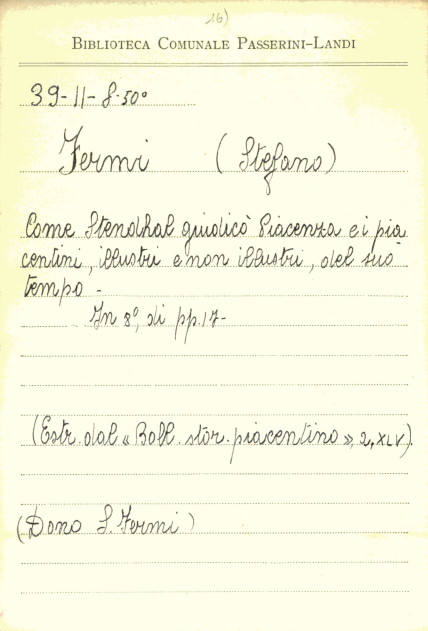 16)
BIBLIOTECA COMUNALE PASSERINI-LANDI
39-11-8-50°
Fermi (Stefano)
Come Stendhal giudicò Piacenza e i pia
centini, illustri e non illustri, del suo
tempo -
In 8°, di pp. 17-
(Estr. dal « Boll. stor. piacentino », 2, XLV).
(Dono S. Fermi)